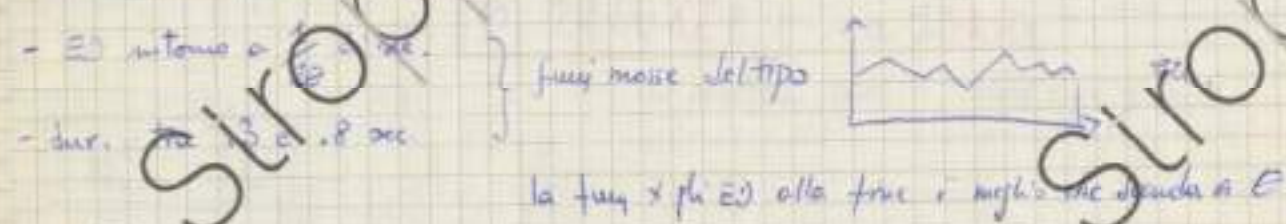 - ED intorno a sec.
- dur. tra .3 e .8 sec.
funz mosse del tipo
la funz x gli ED alla fine è meglio che scenda a
Siro
Siro